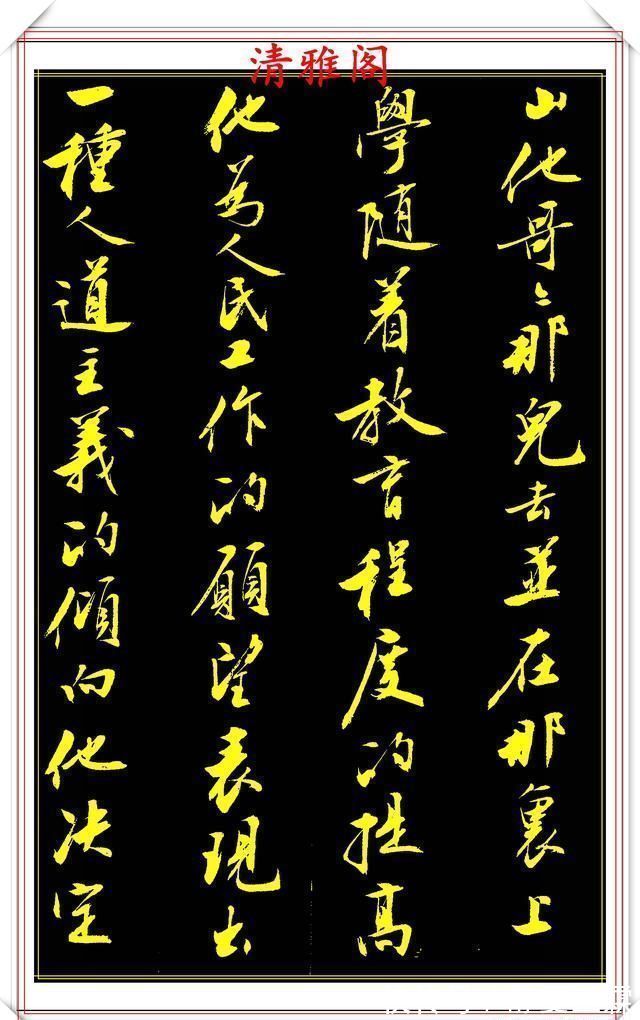 清雅阁
山他哥々那兒去並在那裏上
學随着教育程度的提高
他為人民工作的願望表現出
一種人道主義的傾向他决定